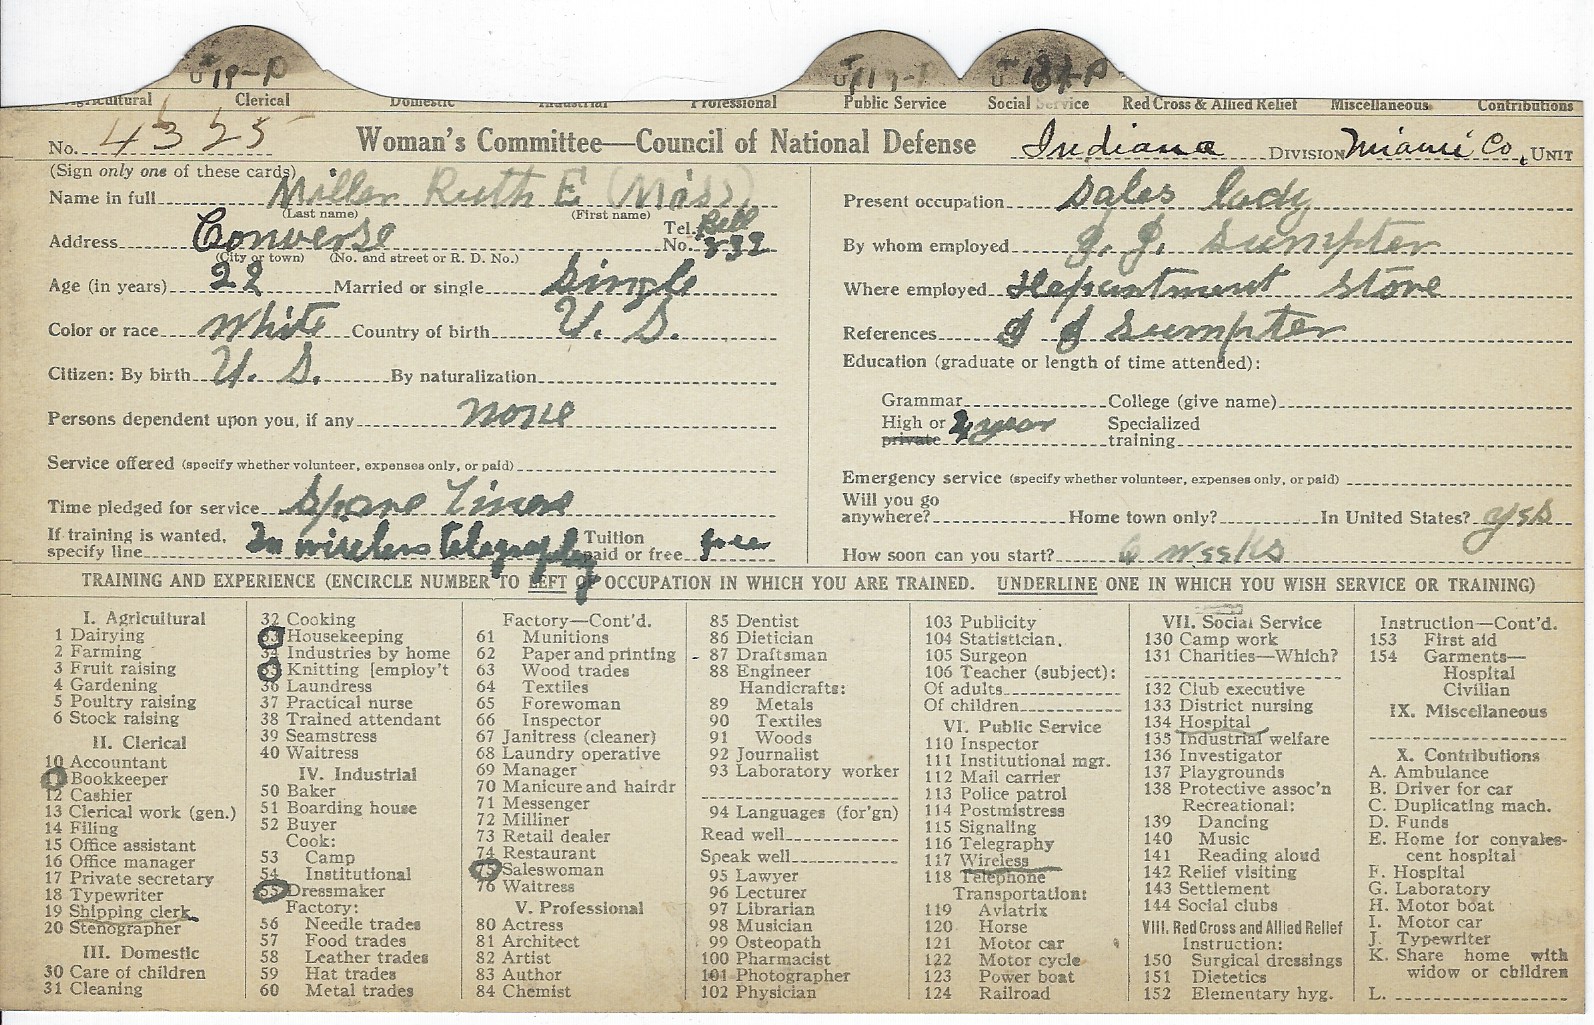 U 19-P U 117-P U 134-P
Agricultural Clerical Domestic Industrial Professional Public Service Social Service Red Cross & Allied Relief Miscellaneous Contributions
No. 4325 Woman's Committee—Council of National Defense Indiana DIVISION Miami Co, UNIT
(Sign only one of these cards)
Name in full Miller Ruth E (Miss)
(Last name) (First name)
Address Converse Tel. No. Bell 332
(City or town) (No. and street or R. D. No.)
Age (in years) 22 Married or single Single
Color or race White Country of birth U. S.
Citizen: By birth U. S. By naturalization
Persons dependent upon you, if any none
Service offered (specify whether volunteer, expenses only, or paid)
Time pledged for service Spare Times
If training is wanted, specify line In wireless telegraphy Tuition paid or free free
Present occupation Sales lady
By whom employed J. J. Sumpter
Where employed Department Store
References J J Sumpter
Education (graduate or length of time attended):
Grammar College (give name)
High or private 2 year Specialized training
Emergency service (specify whether volunteer, expenses only, or paid)
Will you go anywhere? Home town only? In United States? yes
How soon can you start? 6 weeks
TRAINING AND EXPERIENCE (ENCIRCLE NUMBER TO LEFT OF OCCUPATION IN WHICH YOU ARE TRAINED. UNDERLINE ONE IN WHICH YOU WISH SERVICE OR TRAINING)
I. Agricultural
1 Dairying
2 Farming
3 Fruit raising
4 Gardening
5 Poultry raising
6 Stock raising
II. Clerical
10 Accountant
11 Bookkeeper
12 Cashier
13 Clerical work (gen.)
14 Filing
15 Office assistant
16 Office manager
17 Private secretary
18 Typewriter
19 Shipping clerk
20 Stenographer
III. Domestic
30 Care of children
31 Cleaning
32 Cooking
33 Housekeeping
34 Industries by home
35 Knitting [employ't
36 Laundress
37 Practical nurse
38 Trained attendant
39 Seamstress
40 Waitress
IV. Industrial
50 Baker
51 Boarding house
52 Buyer
Cook:
53 Camp
54 Institutional
55 Dressmaker
Factory:
56 Needle trades
57 Food trades
58 Leather trades
59 Hat trades
60 Metal trades
Factory—Cont'd.
61 Munitions
62 Paper and printing
63 Wood trades
64 Textiles
65 Forewoman
66 Inspector
67 Janitress (cleaner)
68 Laundry operative
69 Manager
70 Manicure and hairdr
71 Messenger
72 Milliner
73 Retail dealer
74 Restaurant
75 Saleswoman
76 Waitress
V. Professional
80 Actress
81 Architect
82 Artist
83 Author
84 Chemist
85 Dentist
86 Dietician
87 Draftsman
88 Engineer
Handicrafts:
89 Metals
90 Textiles
91 Woods
92 Journalist
93 Laboratory worker
94 Languages (for'gn)
Read well
Speak well
95 Lawyer
96 Lecturer
97 Librarian
98 Musician
99 Osteopath
100 Pharmacist
101 Photographer
102 Physician
103 Publicity
104 Statistician.
105 Surgeon
106 Teacher (subject):
Of adults
Of children
VI. Public Service
110 Inspector
111 Institutional mgr.
112 Mail carrier
113 Police patrol
114 Postmistress
115 Signaling
116 Telegraphy
117 Wireless
118 Telephone
Transportation:
119 Aviatrix
120 Horse
121 Motor car
122 Motor cycle
123 Power boat
124 Railroad
VII. Social Service
130 Camp work
131 Charities—Which?
132 Club executive
133 District nursing
134 Hospital
135 Industrial welfare
136 Investigator
137 Playgrounds
138 Protective assoc'n
Recreational:
139 Dancing
140 Music
141 Reading aloud
142 Relief visiting
143 Settlement
144 Social clubs
VIII. Red Cross and Allied Relief
Instruction:
150 Surgical dressings
151 Dietetics
152 Elementary hyg.
Instruction—Cont'd.
153 First aid
154 Garments—
Hospital
Civilian
IX. Miscellaneous
X. Contributions
A. Ambulance
B. Driver for car
C. Duplicating mach.
D. Funds
E. Home for convales-
cent hospital
F. Hospital
G. Laboratory
H. Motor boat
I. Motor car
J. Typewriter
K. Share home with
widow or children
L.